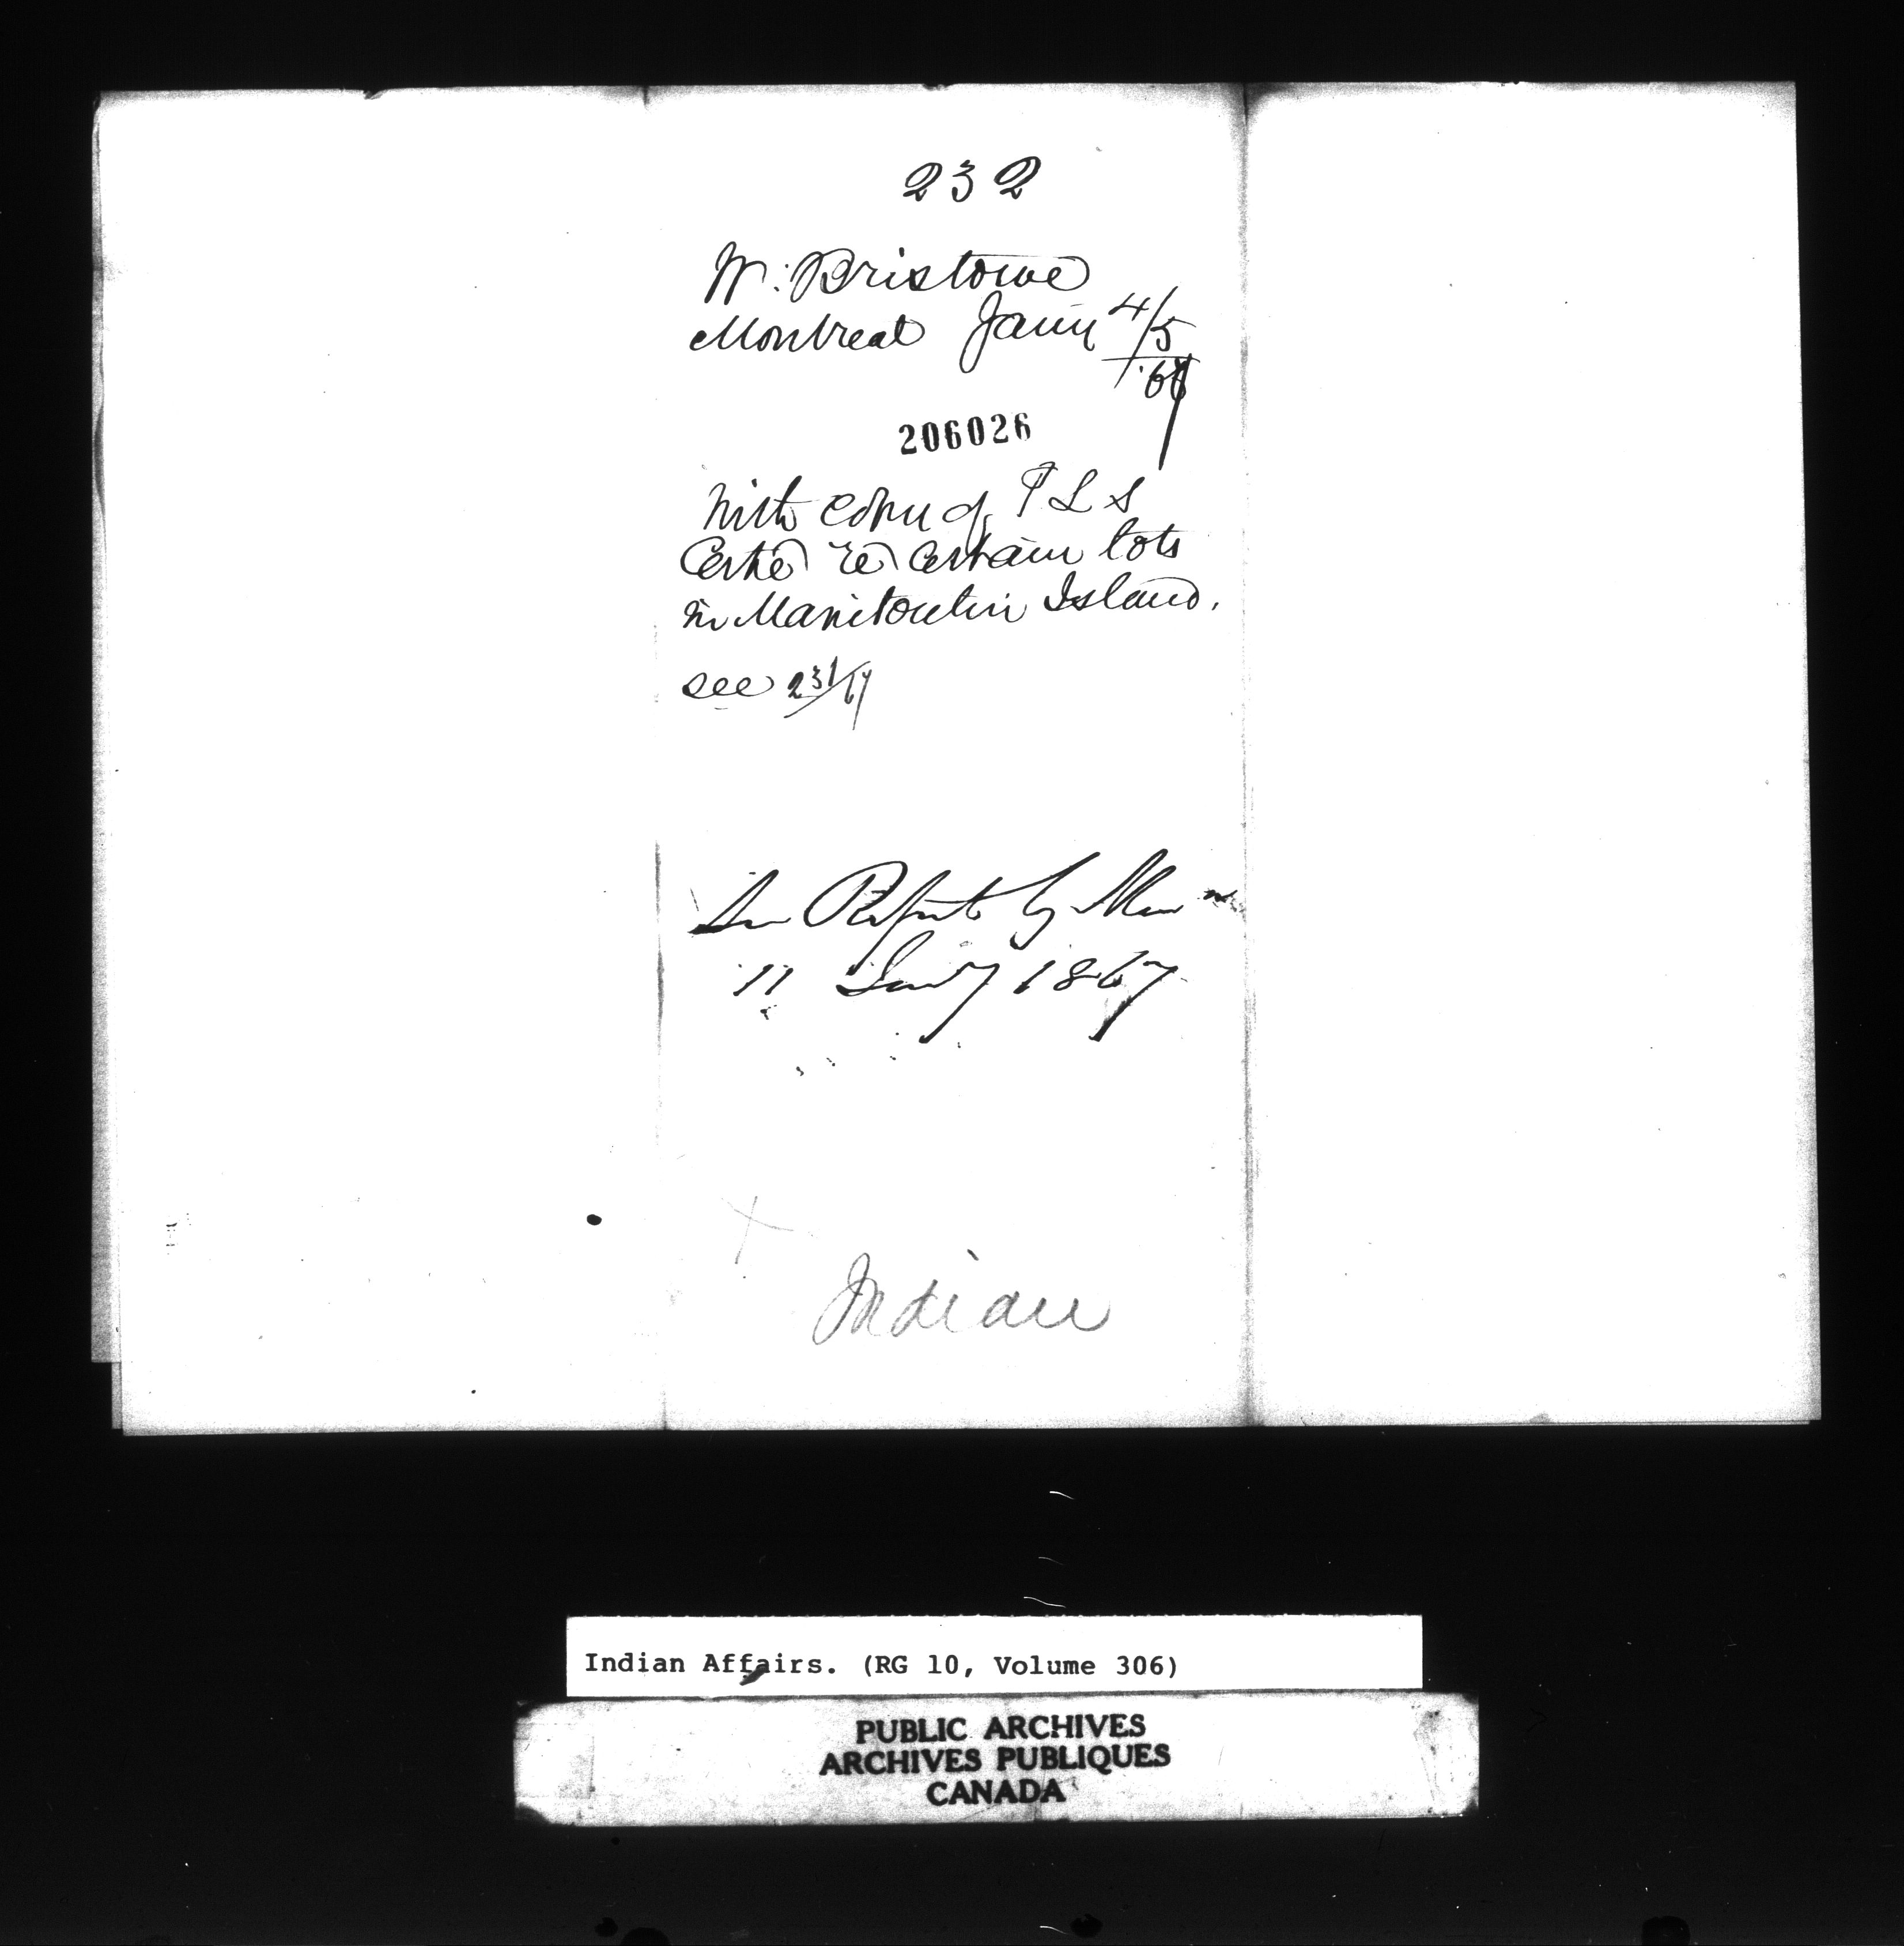 232
W. Bristowe
Montreal Jany 4/5
67
206026
With copy of P L S
Certe re certain lots
in Manitoulin Island.
see 231/67
See Report by Mem
11 Jany 1867
Indian
Indian Affairs. (RG 10, Volume 306)
PUBLIC ARCHIVES
ARCHIVES PUBLIQUES
CANADA